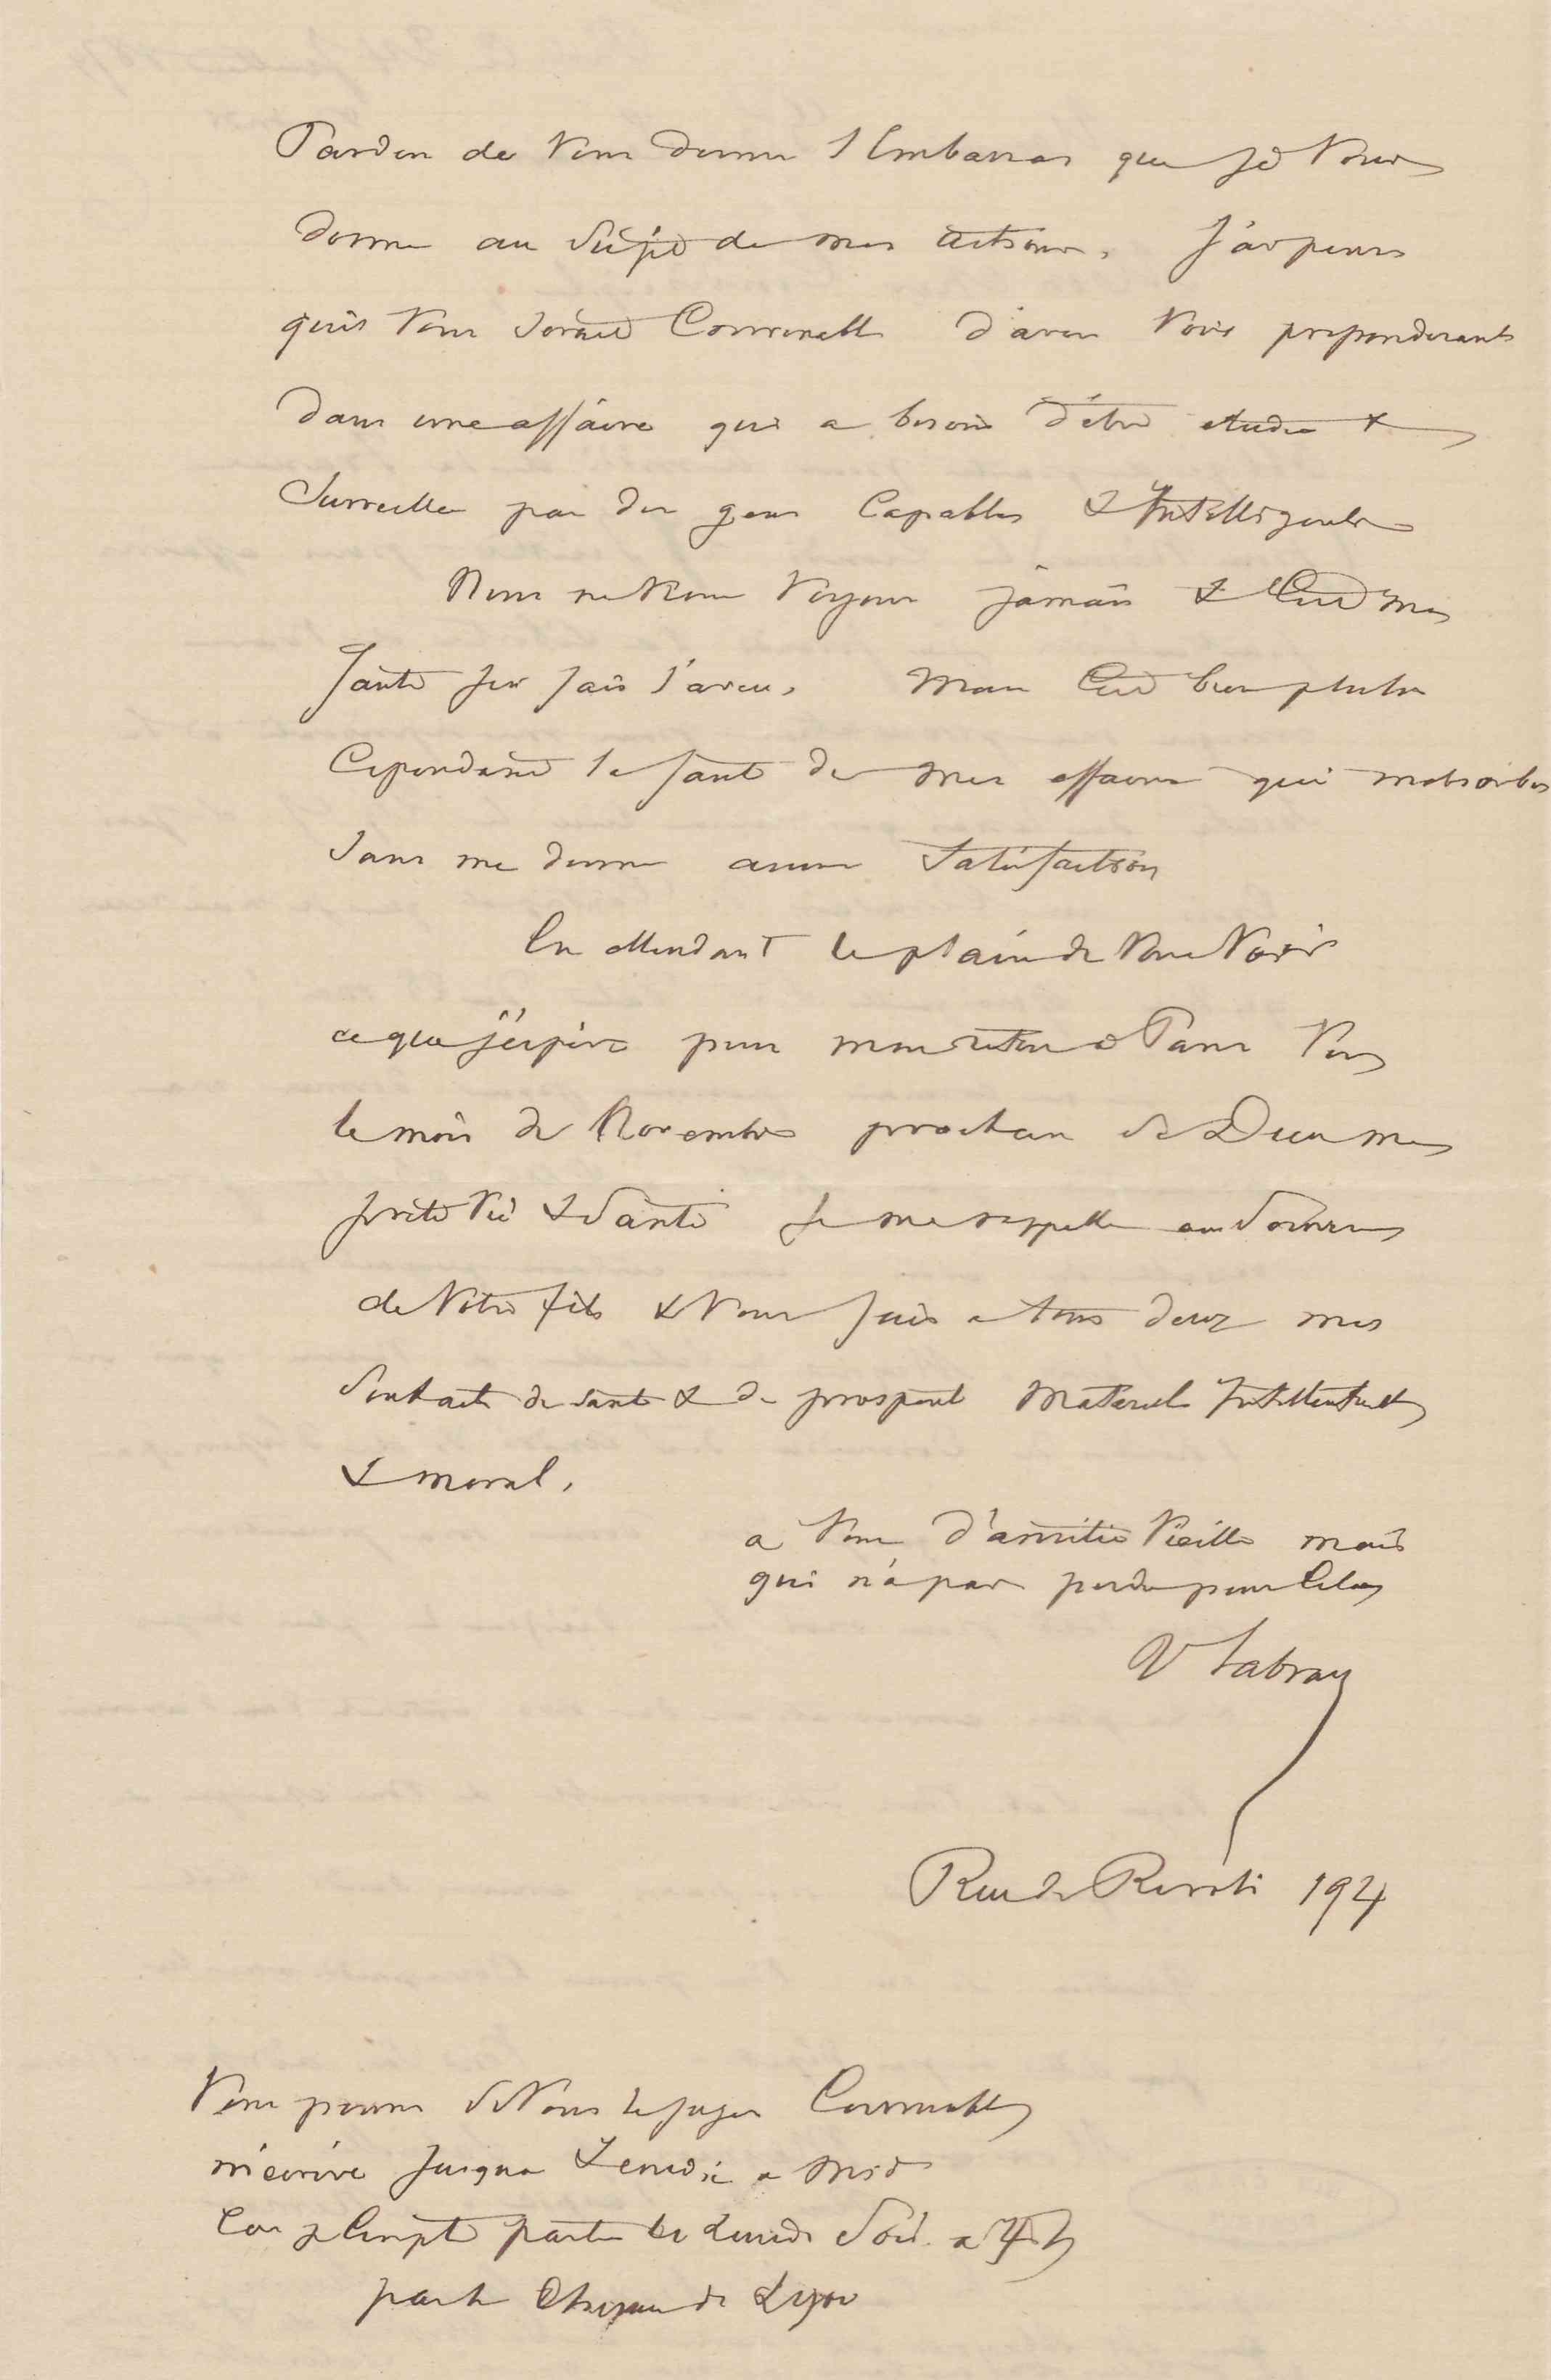 Pardon de vous donner l'Embarras que je vous
donne au sujet de mes actions. J'ai pensé
qu'il vous serait Convenable d'avoir voix preponderante
dans une affaire qui a besoin d'être etudiée &
Surveillée par des gens Capables & Intelligents
Nous ne nous voyons jamais & C'est ma
faute je fais l'aveu. Mais C'est bien plutot
Cependant la faute de mes affaires qui m'absorbes
Sans me donner aucune Satisfaction
En attendant le plaisir de vous voir
ce que j'espère pour mon retour a Paris vers
le mois de Novembre prochain si Dieu me
prête vie & Santé Je me rappelle au Souvenir
de votre fils & vous fais a tous deux mes
Souhaits de santé & de prosperité Materiel Intellectuel
& moral.
a vous d'amitié vieille mais
qui n'a pas perdu pour Cela
V Sabran
Rue de Rivoli 194
Vous pouvez si vous le jugez Convenable
m'ecrire jusqua Lundi a Midi
Car je Compte partir le Lundi Soir a 7h
par le Chemin de Lyon